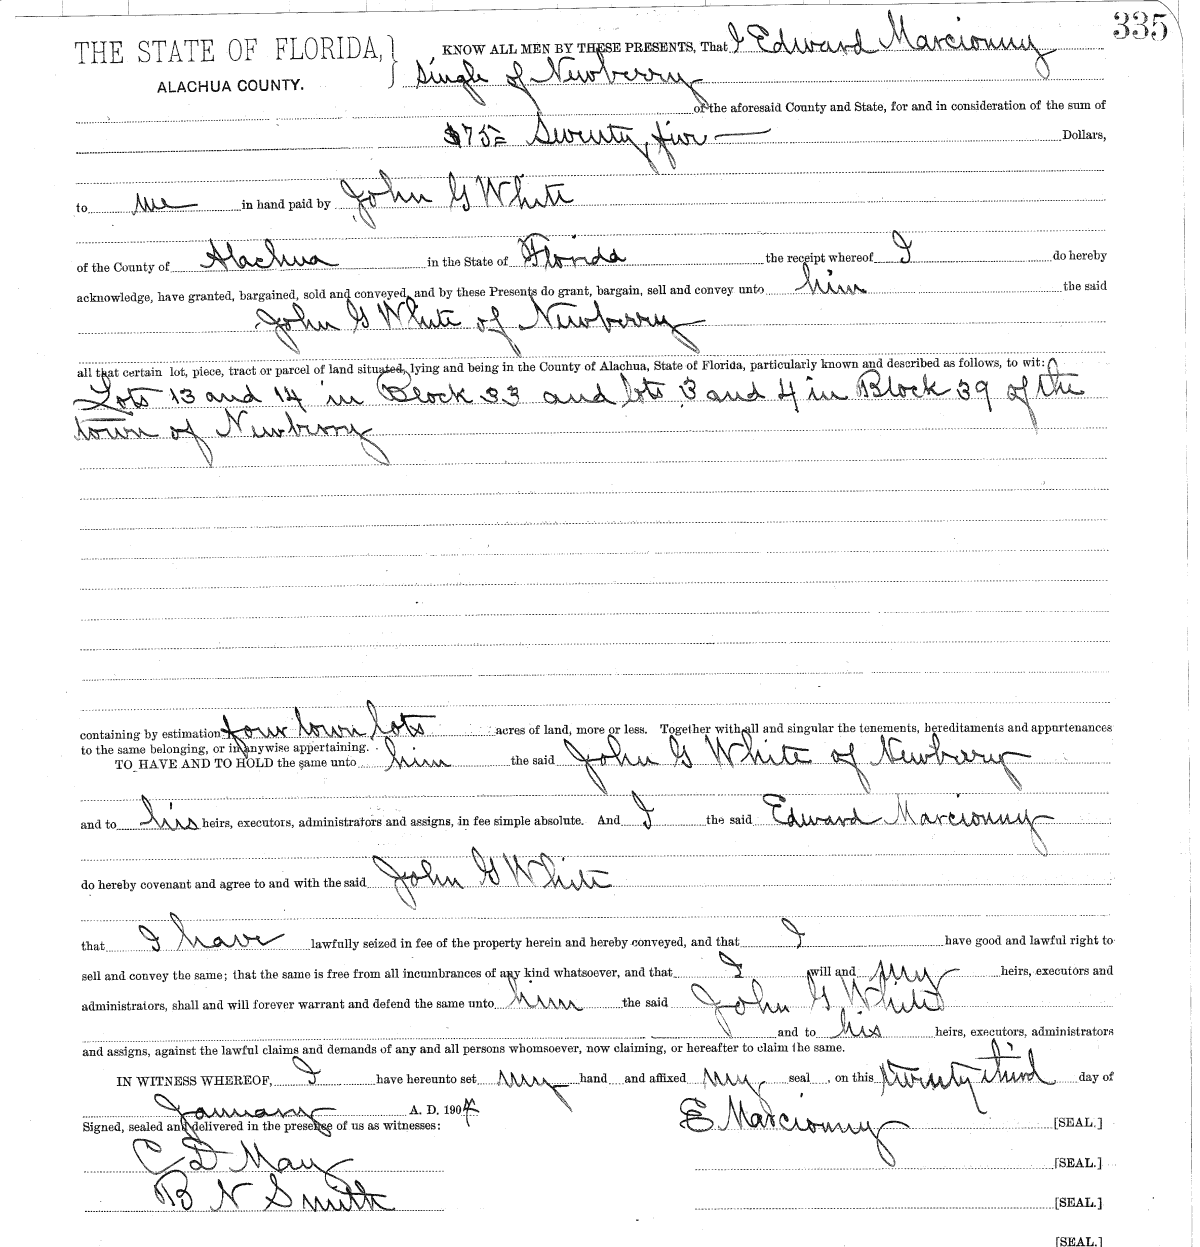 335
THE STATE OF FLORIDA, } KNOW ALL MEN BY THESE PRESENTS, That I Edward Marcionny
ALACHUA COUNTY. Single of Newberry
of the aforesaid County and State, for and in consideration of the sum of
$75= Seventy, five Dollars,
to me in hand paid by John G White
of the County of Alachua in the State of Florida the receipt whereof I do hereby
acknowledge, have granted, bargained, sold and conveyed, and by these Presents do grant, bargain, sell and convey unto him the said
John G White of Newberry
all that certain lot, piece, tract or parcel of land situated, lying and being in the County of Alachua, State of Florida, particularly known and described as follows, to wit:
Lots 13 and 14 in Block 33 and lots 3 and 4 in Block 39 of the
town of Newberry
containing by estimation four town lots acres of land, more or less. Together with all and singular the tenements, hereditaments and appurtenances
to the same belonging, or in anywise appertaining.
TO HAVE AND TO HOLD the same unto him the said John G White of Newberry
and to his heirs, executors, administrators and assigns, in fee simple absolute. And I the said Edward Marcionny
do hereby covenant and agree to and with the said John G White
that I have lawfully seized in fee of the property herein and hereby conveyed, and that I have good and lawful right to
sell and convey the same; that the same is free from all incumbrances of any kind whatsoever, and that I will and my heirs, executors and
administrators, shall and will forever warrant and defend the same unto him the said John G White
and to his heirs, executors, administrators
and assigns, against the lawful claims and demands of any and all persons whomsoever, now claiming, or hereafter to claim the same.
IN WITNESS WHEREOF, I have hereunto set my hand and affixed my seal , on this twenty third day of
January A. D. 1904
Signed, sealed and delivered in the presence of us as witnesses: E Marcionny [SEAL.]
C D May [SEAL.]
B N Smith [SEAL.]
[SEAL.]